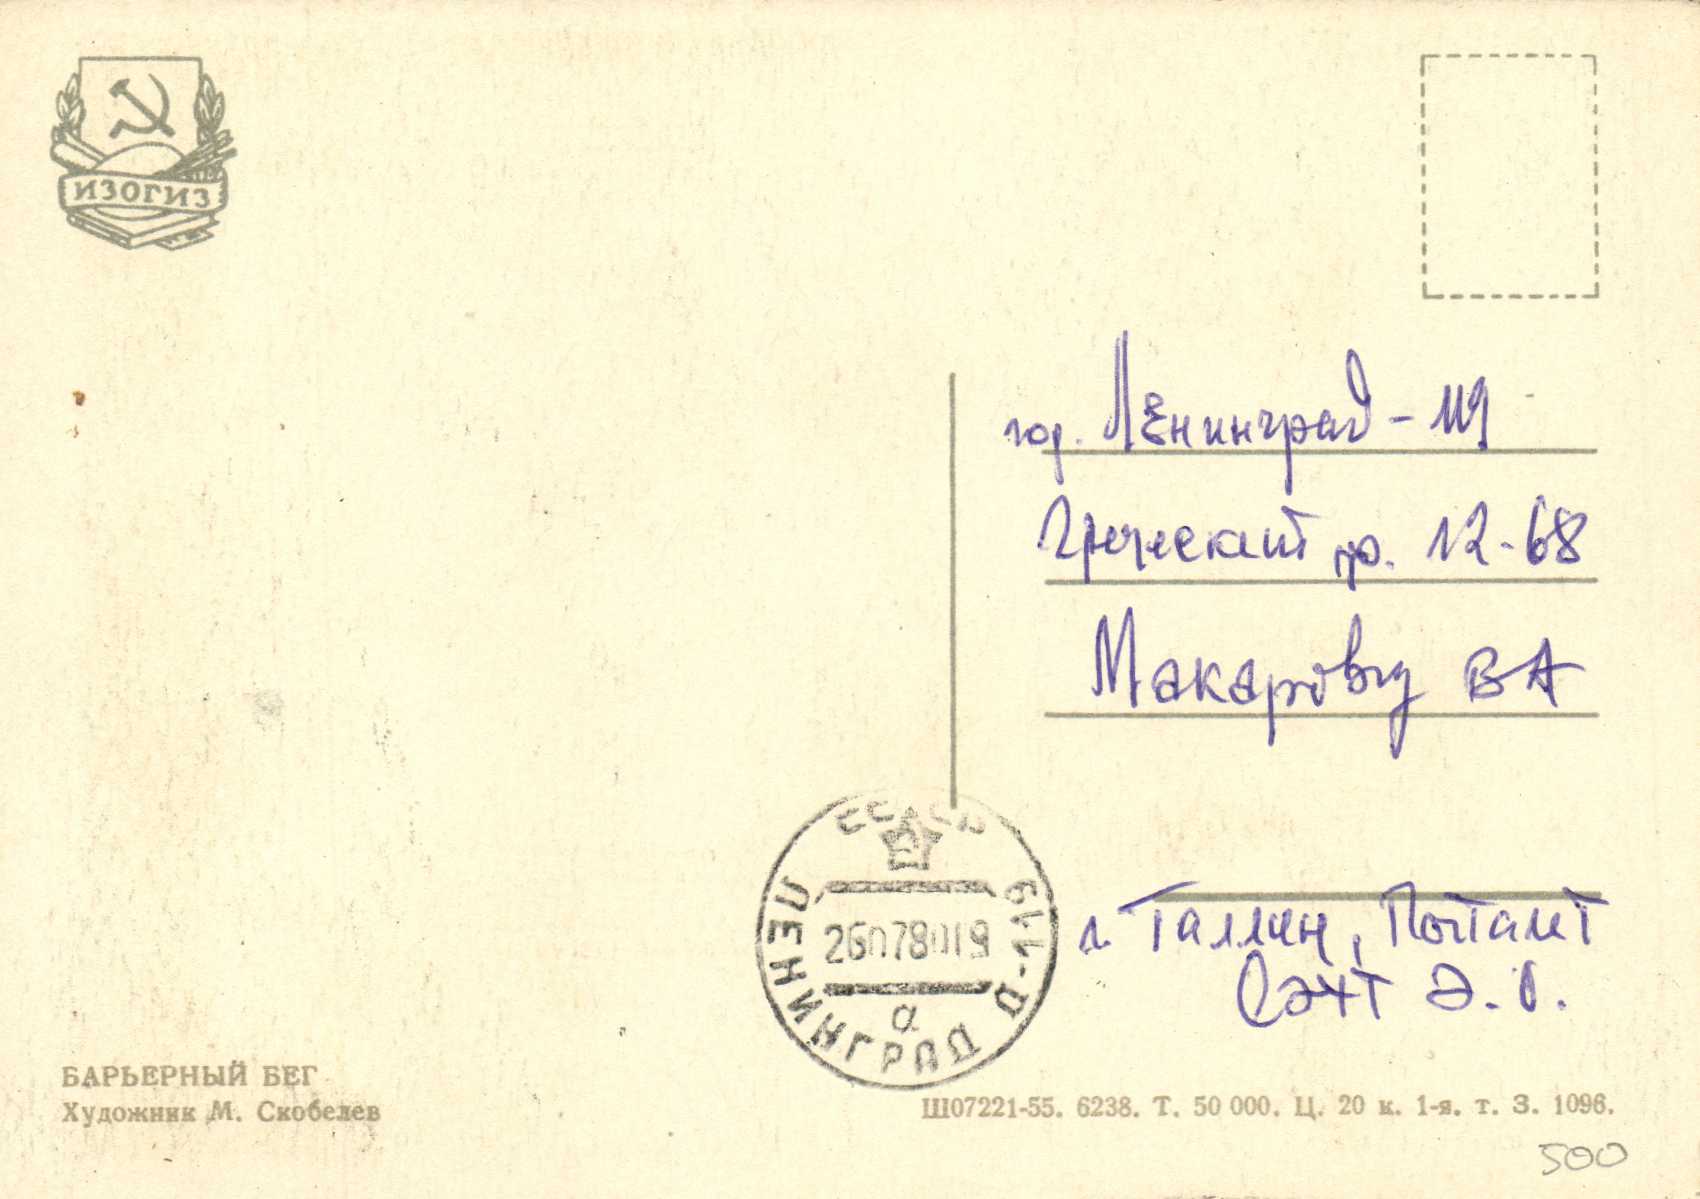 ИЗОГИЗ
гор. Ленинград - 119
Греческий пр. 12-68
Макарову В А
г. Таллин, Почтамт
Сэнт Э. О.
СССР
ЛЕНИНГРАД Д-119
26078019
а
БАРЬЕРНЫЙ БЕГ
Художник М. Скобелев
Ш07221-55. 6238. Т. 50 000. Ц. 20 к. 1-я. т. З. 1096.
500